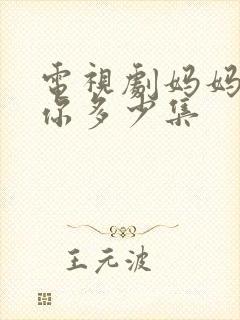 電視劇妈妈
你多少集
王元波